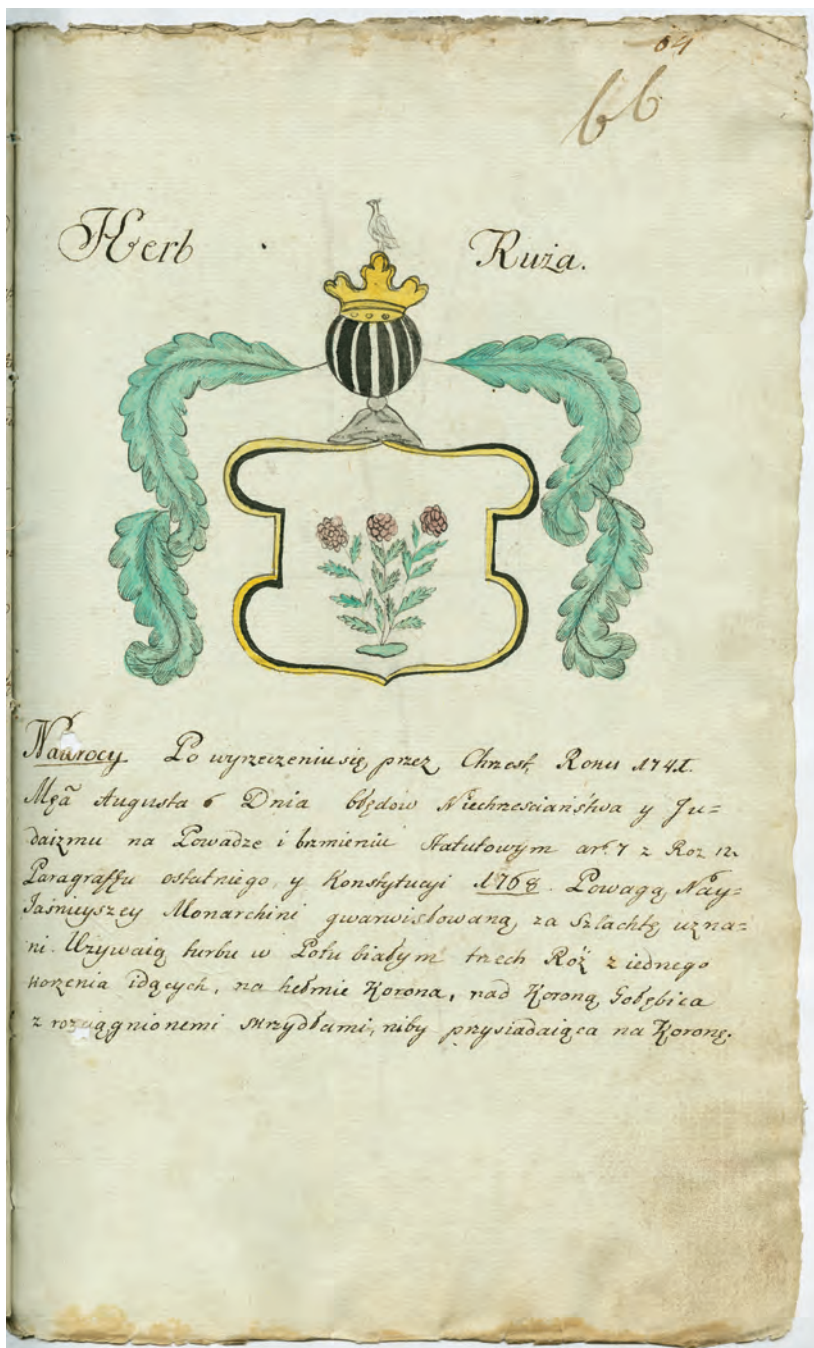 64
66
Herb Ruża.
Nawrocy Po wyrzeczeniu się przez Chrzest, Roku 1741.
Mςã Augusta 6 Dnia błędów Niechrzesciaństwa y Ju=
daizmu na Powadze i brzmieniu Statutowym art. 7 z Roz 12.
Paragraffu ostatniego, y Konstytucyi 1768. Powagą Nay=
Jaśnieyszey Monarchini gwarwistowaną, za Szlachtę uzna=
ni. Używaią turbu w Polu białym trzech Róż z iednego
korzenia idących, na hełmie Korona, nad Koroną, Gołębica
z rozciągnionemi skrzydłami, niby przysiadaiąca na Koronę.